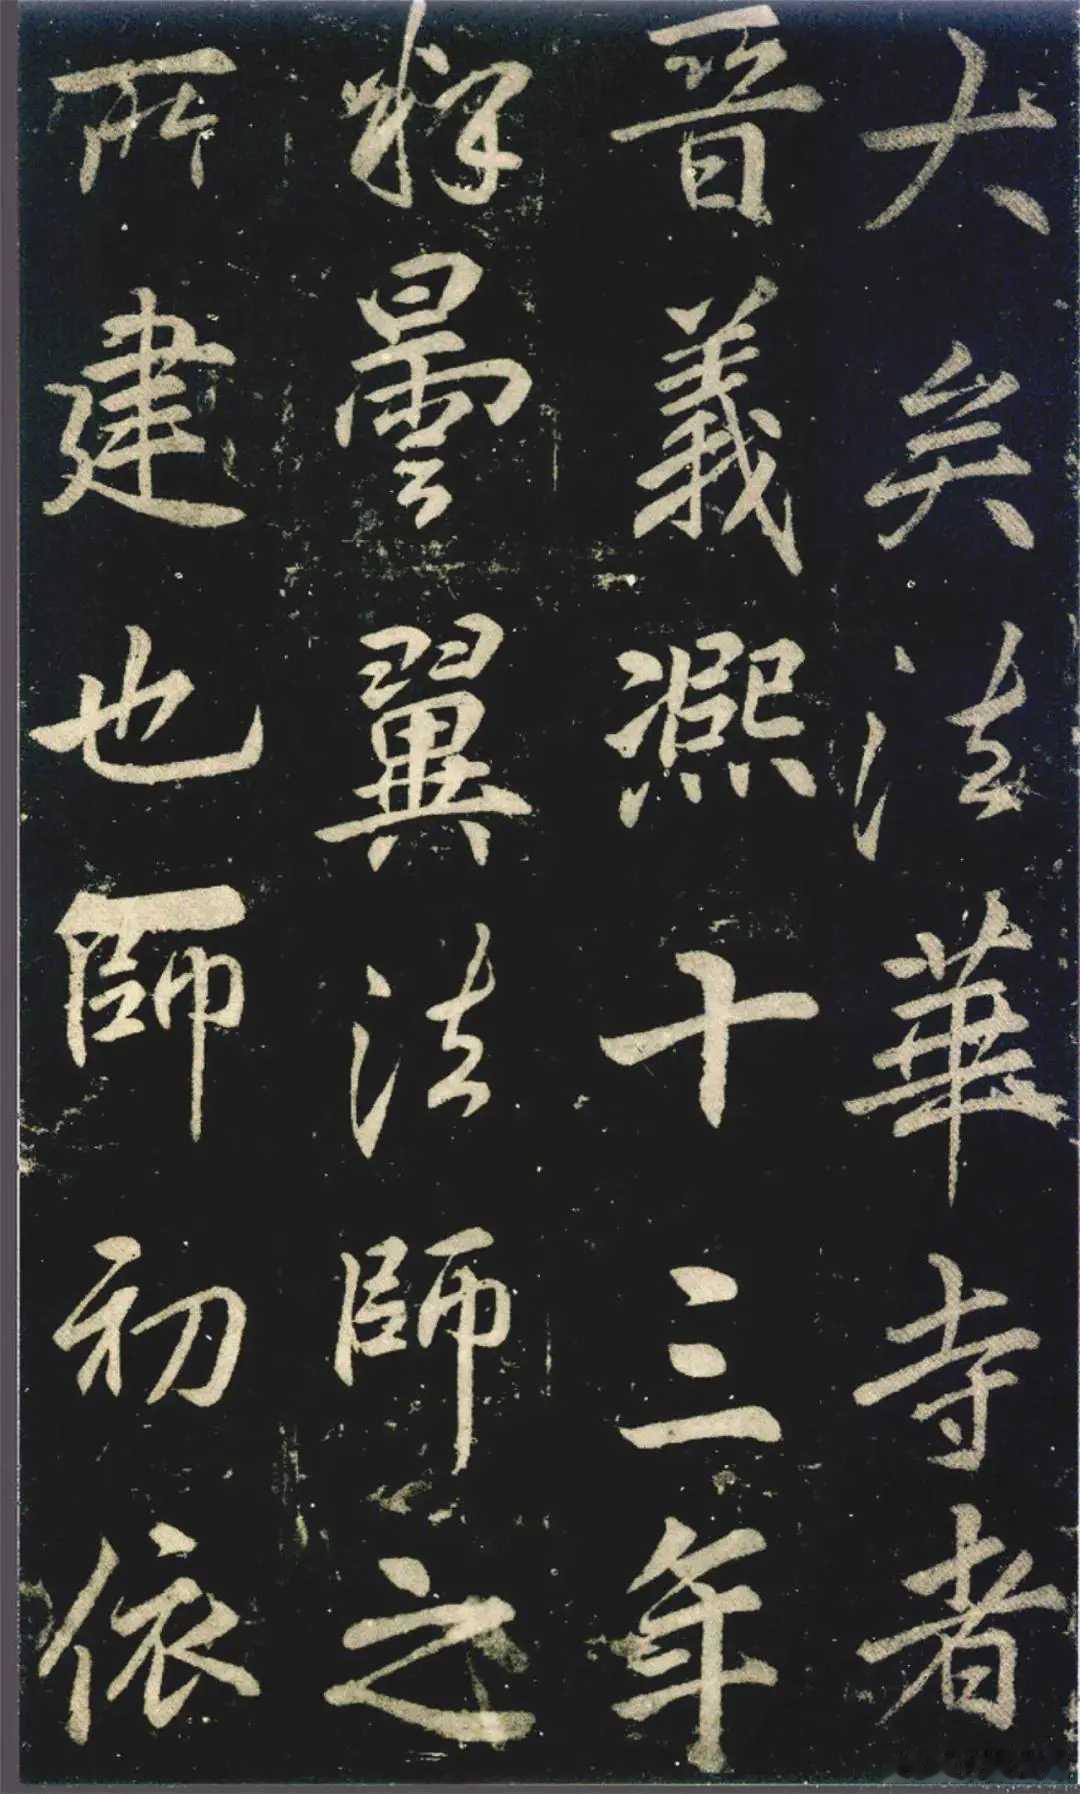 大矣法華寺者
晉義熈十三年
釋曇翼法師之
所建也師初依